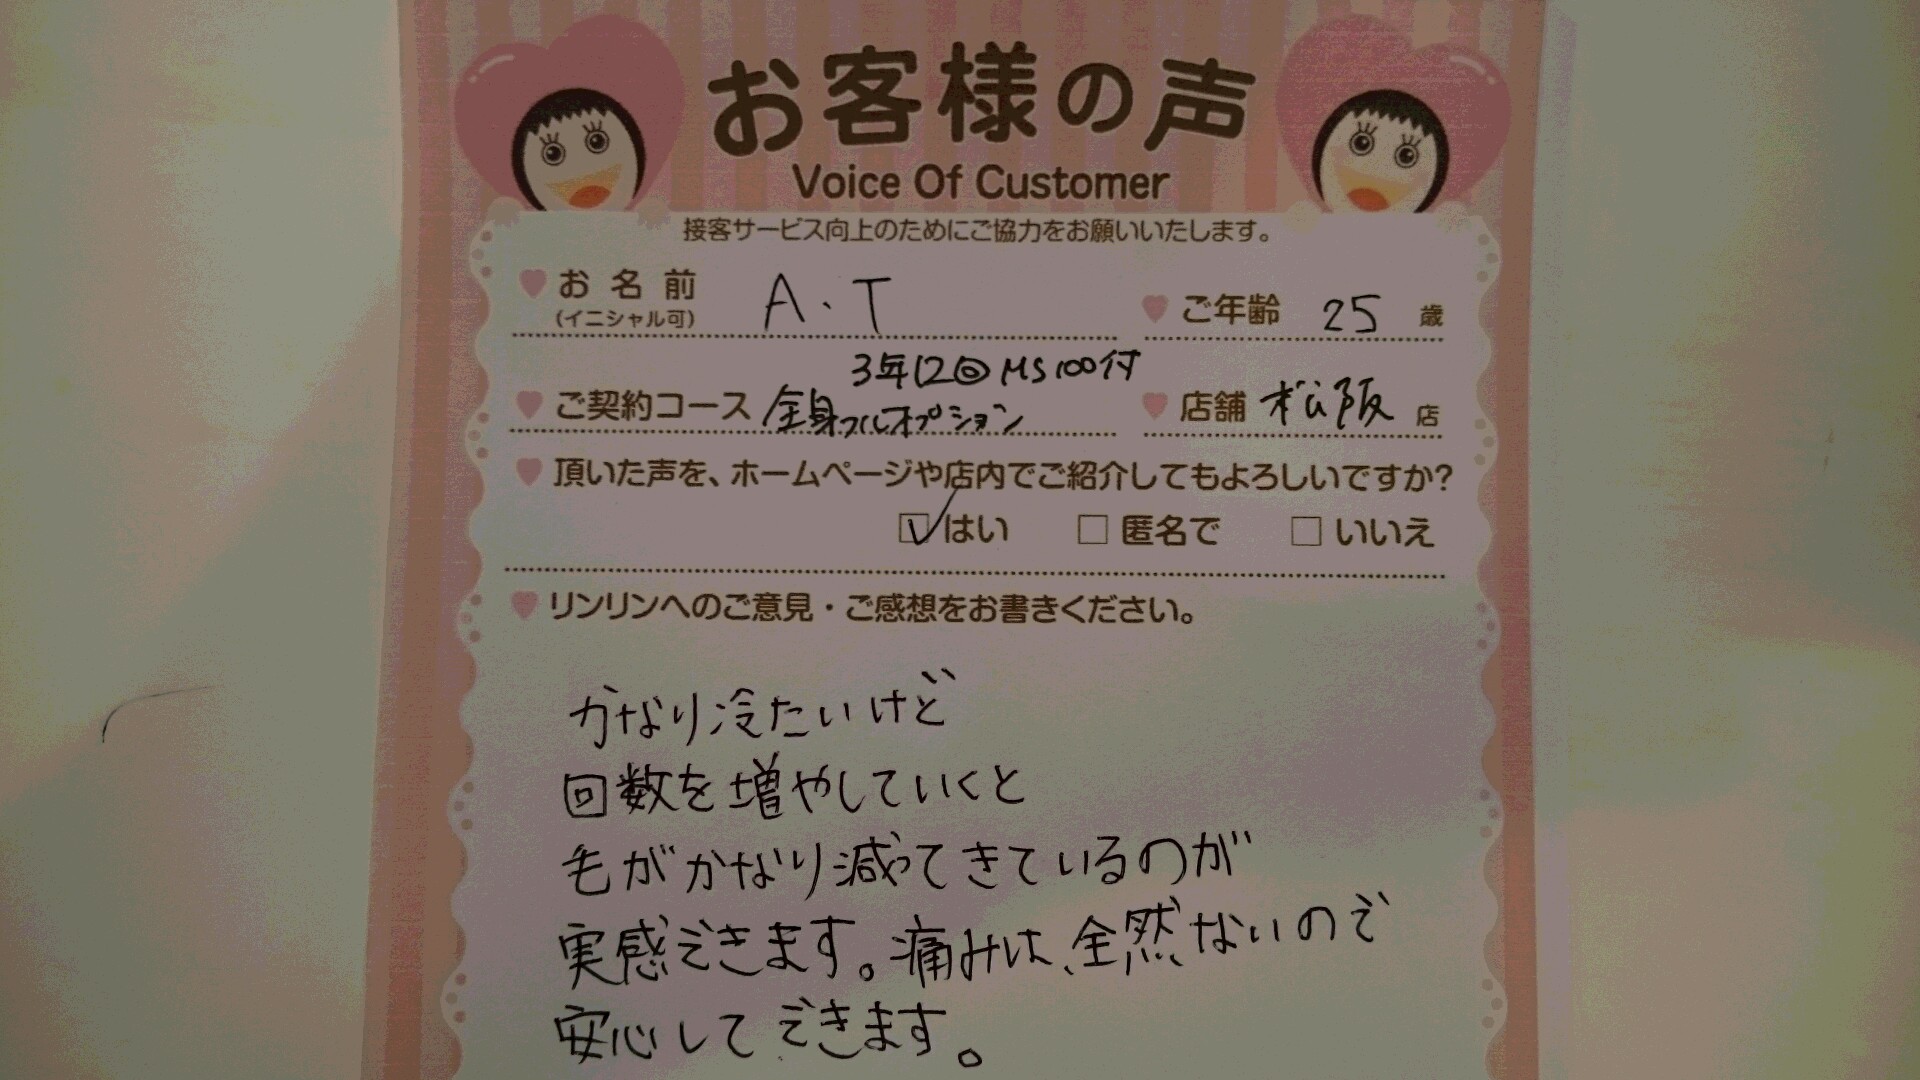 お客様の声
Voice Of Customer
接客サービス向上のためにご協力をお願いいたします。
お名前 A.T ご年齢 25 歳
(イニシャル可)
3年12回 MS100付
ご契約コース 全身フルオプション 店舗 松阪 店
頂いた声を、ホームページや店内でご紹介してもよろしいですか?
はい 匿名で いいえ
リンリンへのご意見・ご感想をお書きください。
かなり冷たいけど
回数を増やしていくと
毛がかなり減ってきているのが
実感できます。痛みは、全然ないので
安心してできます。